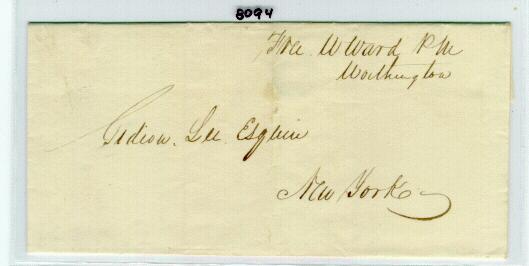 8094
Free W Ward P M
Worthington
Gideon Lee Esquire
New York